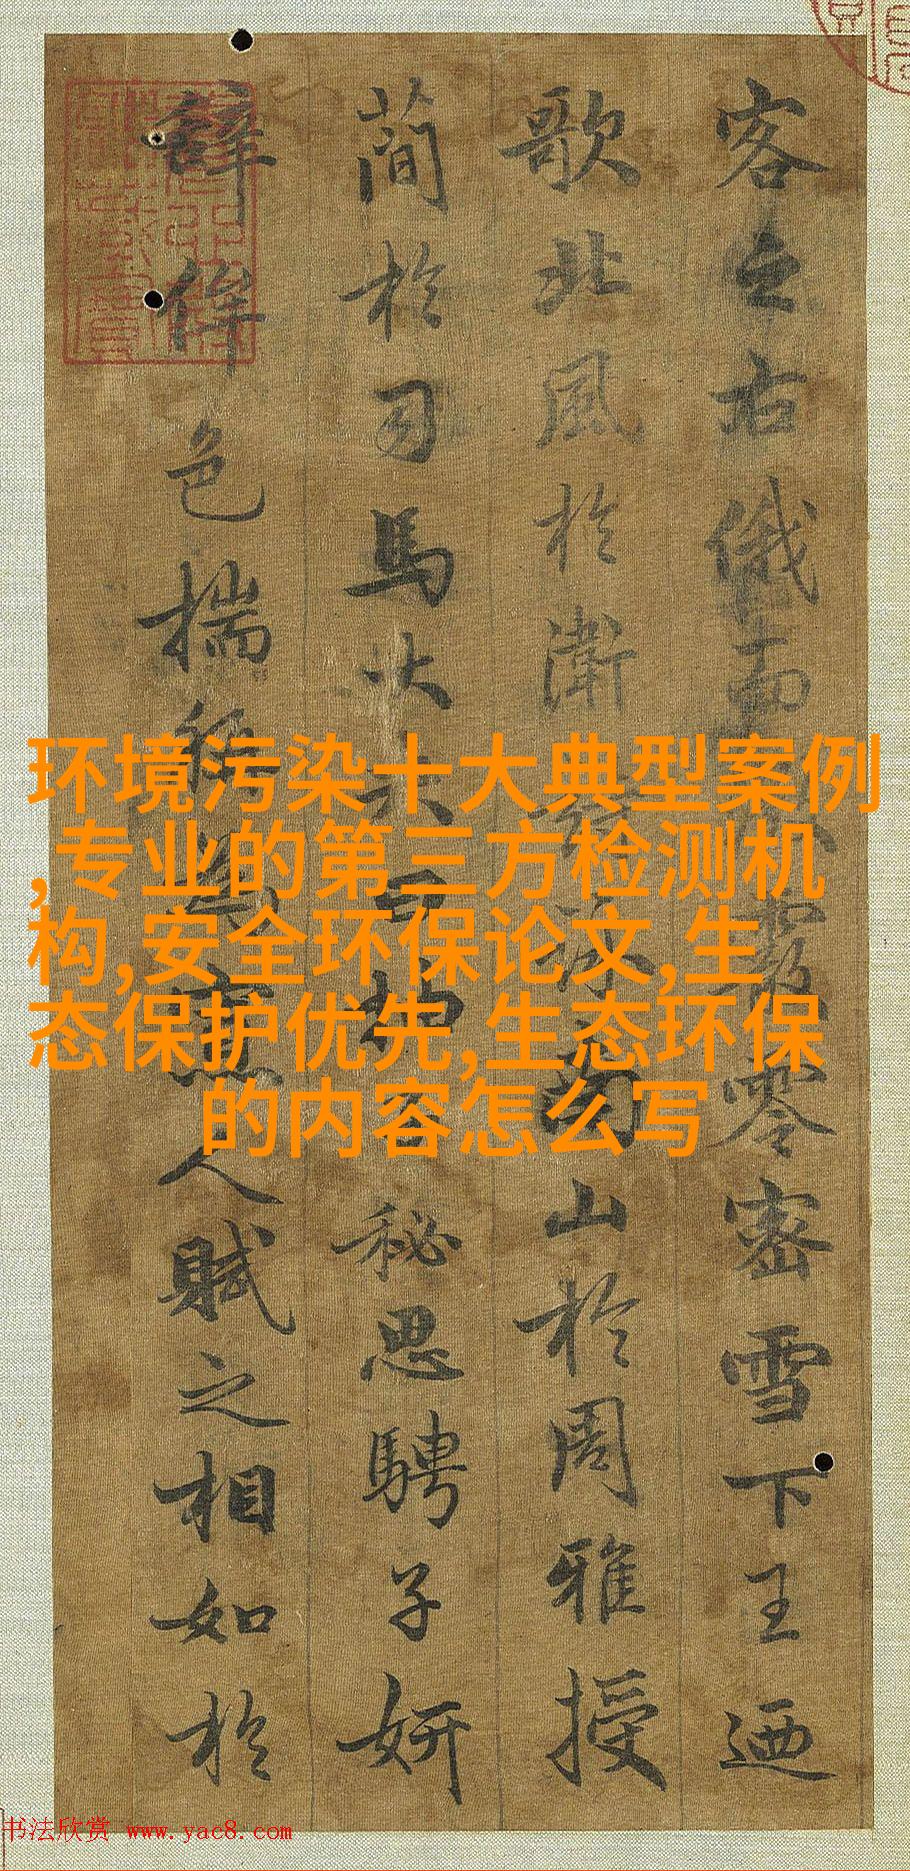 客之右俄而霰零密雪下王迺
歌北風於衛詠南山於周雅授
蕳於司馬大夫曰抽秘思騁子妍
辭侔色揣稱為寡人賦之相如於
环境污染十大典型案例
,专业的第三方检测机
构,安全环保论文,生
态保护优先,生态环保
的内容怎么写
书法欣赏 www.yac8.com